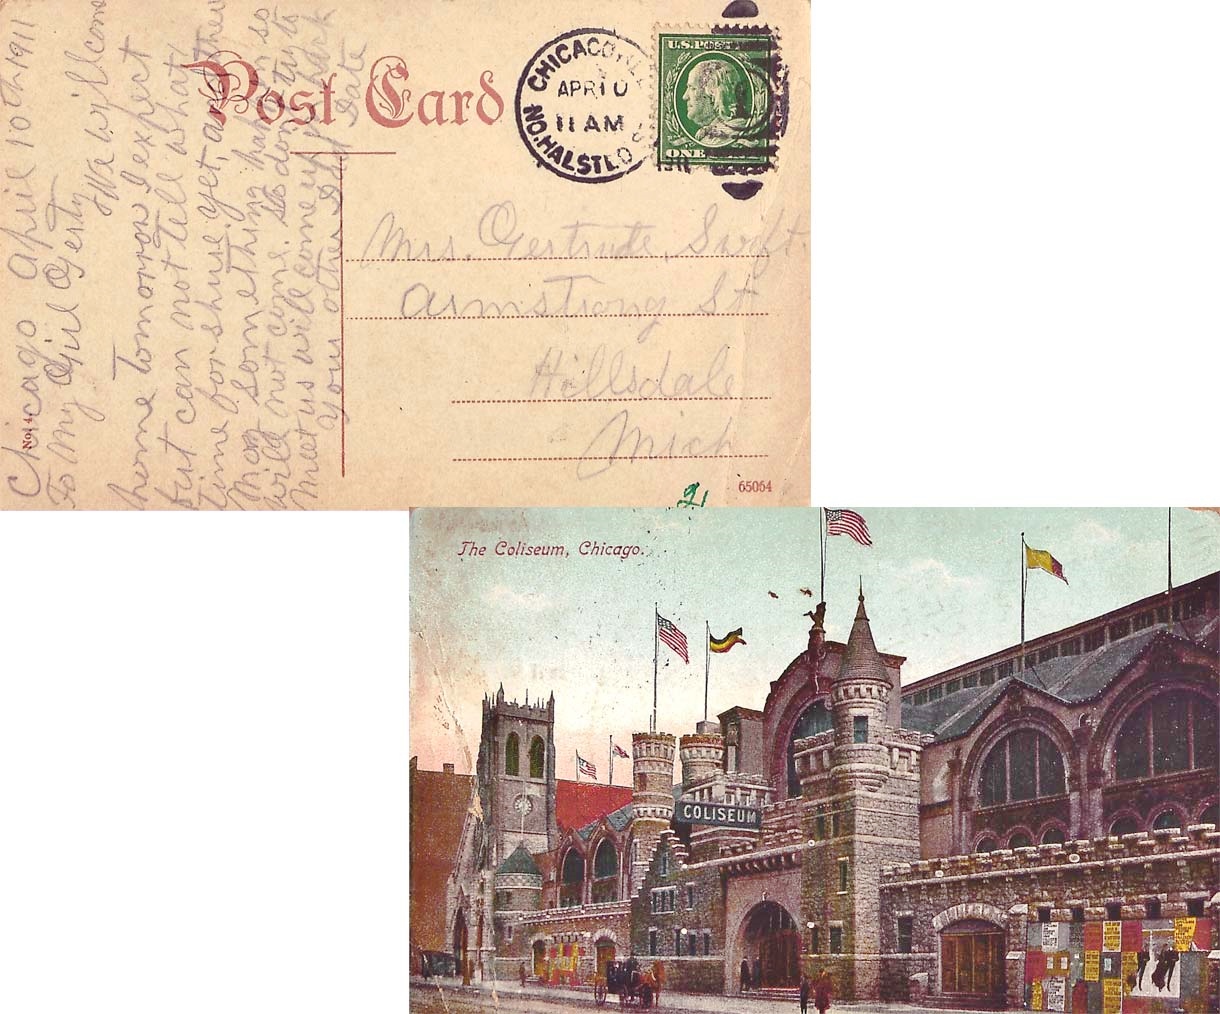 Chicago April 10th 1911
To My Girl Gerty
We will come
home tomorrow I expect
but can not tell what
time for shure yet, and then
may something happen so
will not come. So don't try to
meet us will come up
Your other
Post Card
No. 4
CHICAGO, ILL.
APR 10
11 AM
1911
NO. HALSTED
U.S. POSTAGE
ONE
1
Mrs. Gertrude Swift.
Armstrong St
Hillsdale
Mich
65064
The Coliseum, Chicago.
COLISEUM